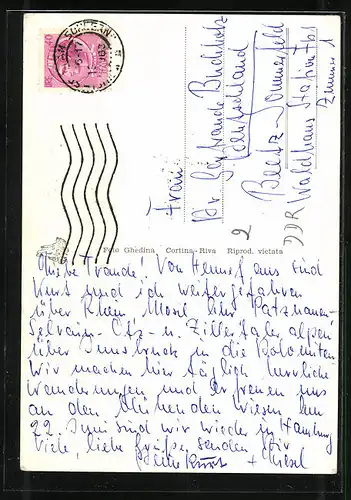 Frau
Dr. Gertraude Buchholz
Deutschland
Beetz-Sommerfeld
Waldhaus Station
Zimmer 1
DDR
Foto Ghedina Cortina-Riva Riprod. vietata
Liebe Traude! Von Hennef aus sind
Kurt und ich weitergefahren
über Rhein Mosel
Ötz- u. Zillertaler Alpen
über Innsbruck in die Dolomiten
Wir machen hier täglich herrliche
Wanderungen und erfreuen uns
an den blühenden Wiesen
22. Juni sind wir wieder in Hamburg
Viele, liebe Grüße senden Dir
Kurt + Gisel